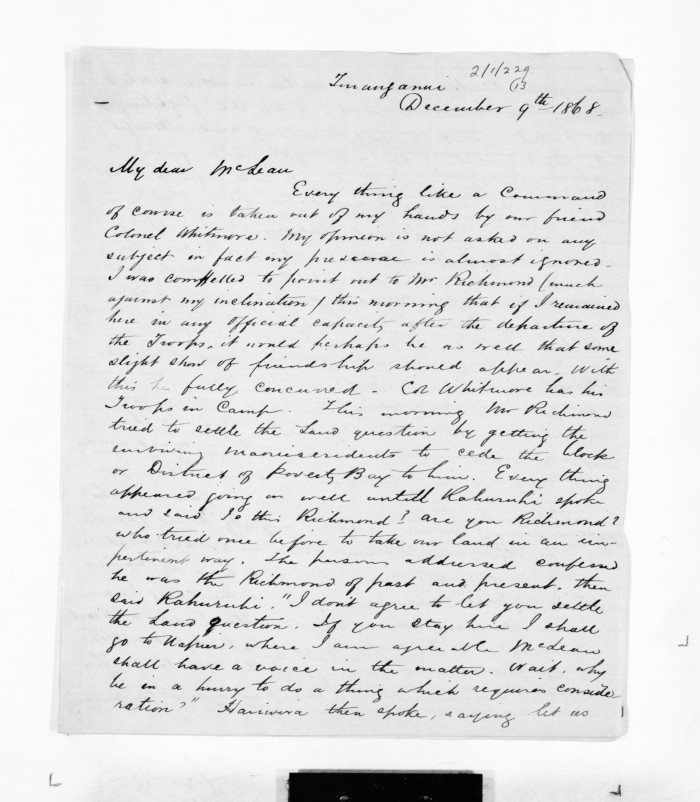 2/1/229
13
Turanganui
December 9th 1868.
My dear McLean
Every thing like a Command
of course is taken out of my hands by our friend
Colonel Whitmore. My opinion is not asked on any
subject in fact my presence is almost ignored.
I was compelled to point out to Mr Richmond (much
against my inclination) this morning that if I remained
here in any official capacity after the departure of
the Troops, it would perhaps be as well that some
slight show of friendship should appear. With
this he fully concurred - Col Whitmore has his
Troops in Camp. This morning Mr Richmond
tried to settle the Land question by getting the
surviving maori residents to cede the block
or District of Poverty Bay to him. Every thing
appeared going on well untill Kahuruhi spoke
and said Is this Richmond? are you Richmond?
who tried once before to take our land in an im-
pertinent way. The person addressed confessed
he was the Richmond of past and present. then
said Kahuruhi. "I don't agree to let you settle
the Land question. If you stay here I shall
go to Napier, where I am agreeable McLean
shall have a voice in the matter. Wait, why
be in a hurry to do a thing which requires conside
ration?" Hariwira then spoke, saying let us